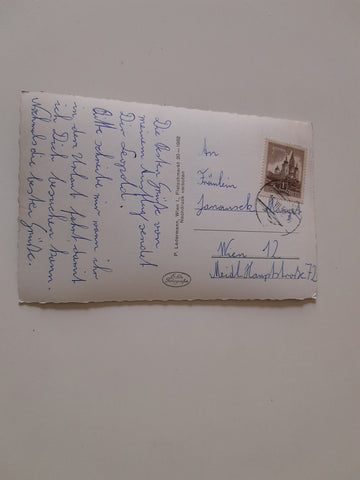 Die besten Grüße von
meinem Ausflug sendet
Dir Leopold!
Bitte schreibe mir wann ihr
in den Urlaub fahrt, damit
ich Dich besuchen kann.
Nochmals die besten Grüße.
P. Ledermann, Wien I, Fleischmarkt 20—1962
Nachdruck verboten
An
Fräulein
Janausek
Wien 12
Meidl. Hauptstraße 72